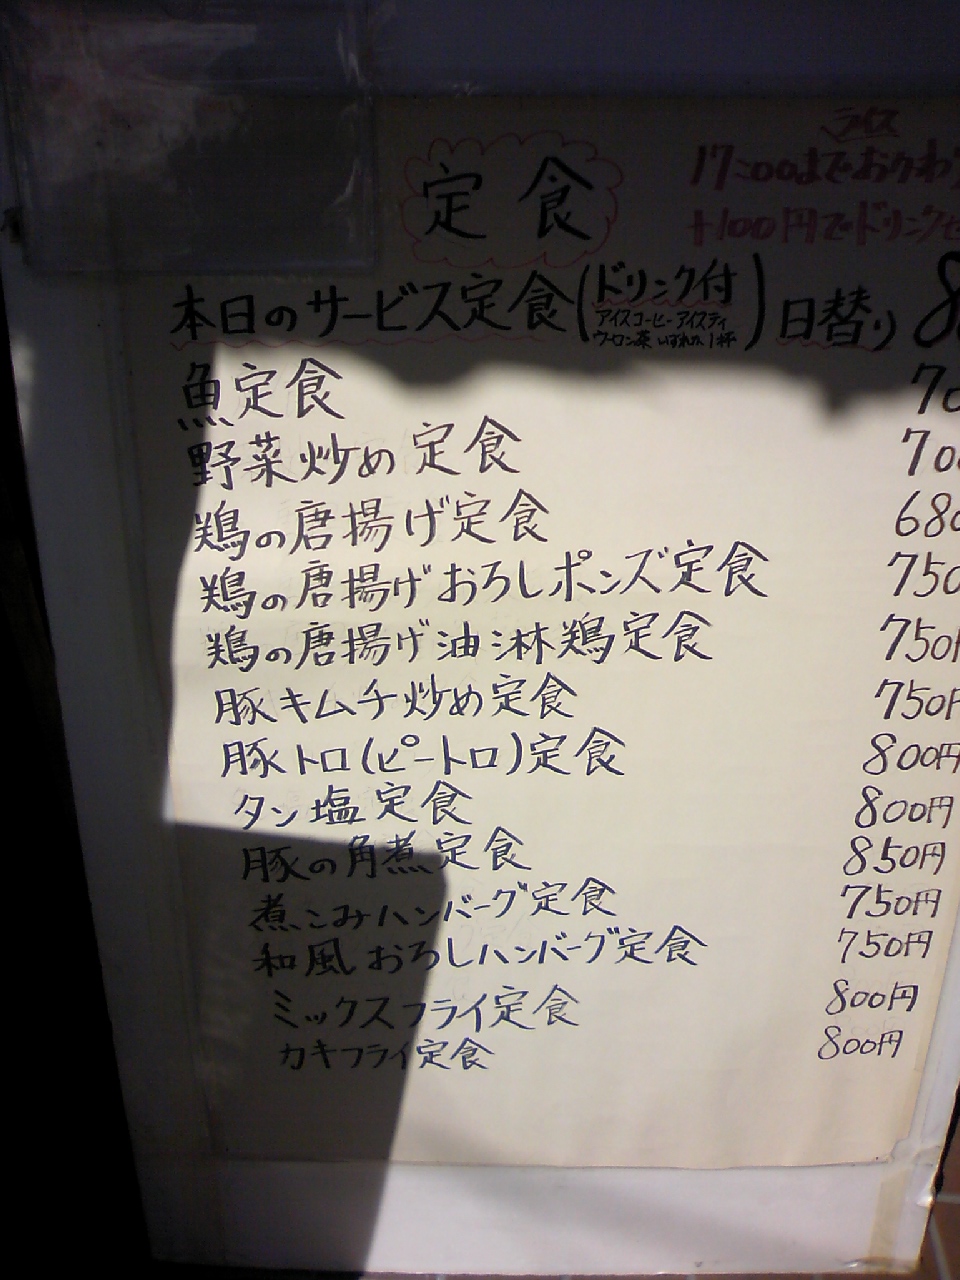 定食
ライス
17:00までおかわ
+100円でドリンクセ
本日のサービス定食(ドリンク付 アイスコーヒー アイスティ ウーロン茶 いずれか1杯) 日替り 8
魚定食 70
野菜炒め定食 700
鶏の唐揚げ定食 680
鶏の唐揚げおろしポンズ定食 750
鶏の唐揚げ油淋鶏定食 750円
豚キムチ炒め定食 750円
豚トロ(ピートロ)定食 800円
タン塩定食 800円
豚の角煮定食 850円
煮こみハンバーグ定食 750円
和風おろしハンバーグ定食 750円
ミックスフライ定食 800円
カキフライ定食 800円